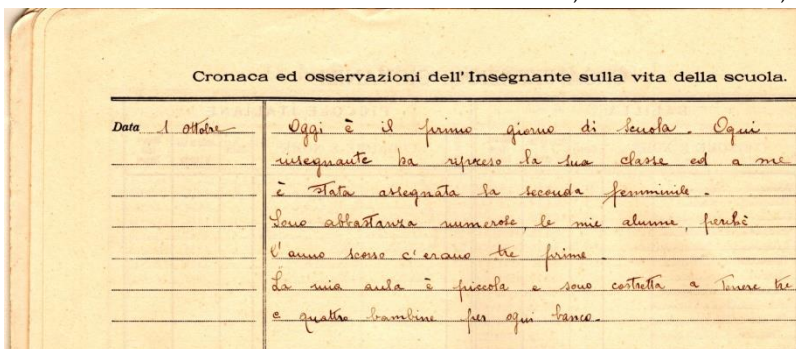 Cronaca ed osservazioni dell'Insegnante sulla vita della scuola.
Data 1 Ottobre
Oggi è il primo giorno di Scuola. Ogni
insegnante ha ripreso la sua classe ed a me
è stata assegnata la seconda femminile.
Sono abbastanza numerose, le mie alunne, perchè
l'anno scorso c'erano tre prime.
La mia aula è piccola e sono costretta a tenere tre
e quattro bambine per ogni banco.